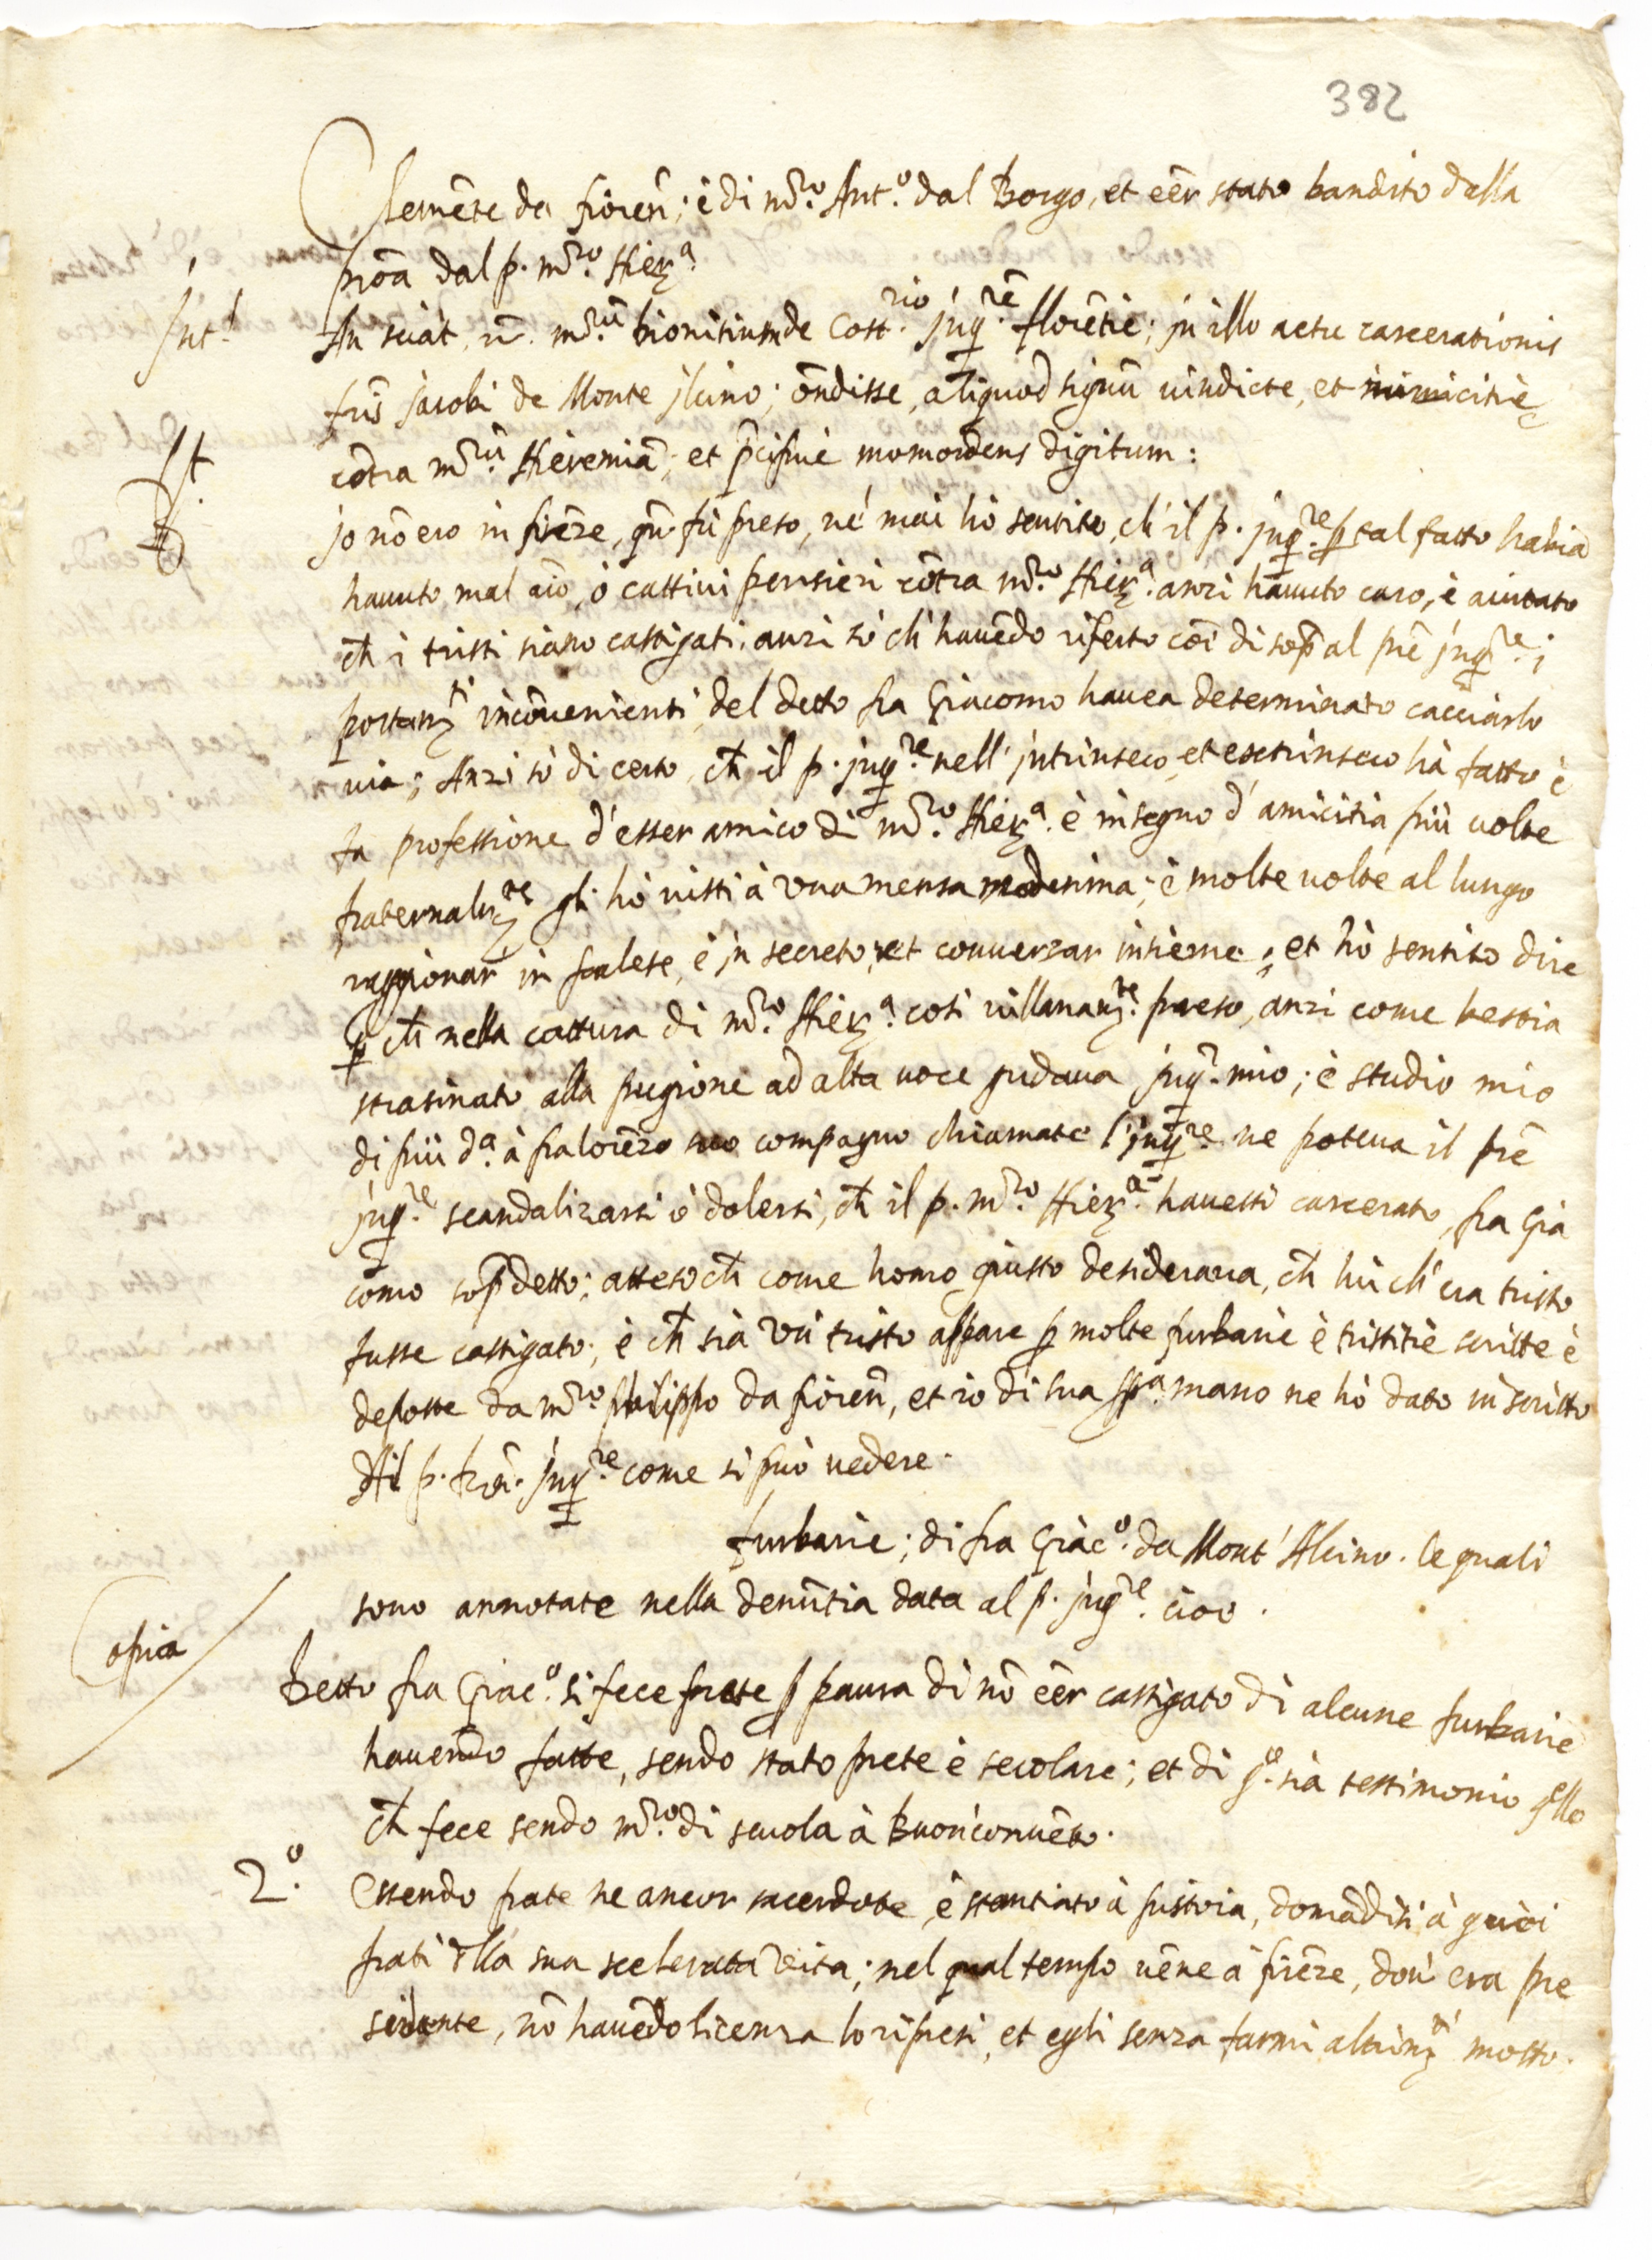 382
Clemēte da fiorēn; è di mr̃o. Ant.o dal Borgo, et eẽr stato bandito dalla
proā dal p. mr̃o. Hier.a
Int.t An sciat, mr̃ũ Dionisium de Cost.rio jnq.rẽ florētie; jn illo actu carcerationis
fris̃ jacobi de Monte jlcino; ōndisse, aliquod signū uindicte, et inimicitiè
cōtra mr̃ũ Hieremiā; et p̄cipuè momordens digitum:
Rt. jo nō ero in firēze, qn̄ fù preso, né mai hò sentito, ch' il p. jnq.re p tal fatto habia
hauuto mal aīo, ò cattiui pensieri cōtra mr̃o. Hier.a anzi hauuto caro, è aiutato
ch̄ i tristi siano castigati: anzi sò ch' hauēdo riferto coẽ di sop̄ al prẽ jnq.re i
portam.ti incōuenienti del detto fra Giacomo hauea determinato cacciarlo
uia; Anzi sò di certo, ch̄ il p. jnq.re nell' jntrinseco, et esctrinseco hà fatto è
fa professione d'esser amico di mr̃o. Hier.a è in segno d'amicitia più uolte
fraternalm.te gli hò uisti à vna mensa medesima; è molte uolte al lungo
raggionar in palese, è jn secreto, et conuerzar insieme; et hò sentito dire
p ch̄ nella cattura di mr̃o. Hier.a cosi uillanam.te preso, anzi come bestia
strasinato alla prigione ad alta uoce gridaua jnq.r mio; è studio mio
di più d.a à fra lorēzo suo compagno chiamate l'jnq.re ne poteua il prẽ
jnq.re scandalizarsi ò dolersi, ch̄ il p. mr̃o. Hier.a hauessi carcerato, fra Gia
como sop̄detto; atteso ch̄ come homo giusto desideraua, ch̄ lui ch' era tristo
fusse castigato; è ch̄ sia vn tristo appare p molte furbarie è tristitie scritte è
deposte da mr̃o. philippo da fiorēn, et io di sua pp.a mano ne hò dato in scritto
Al p. jnq.re come si può uedere.
furbarie; di fra Giac.o da Mont' Alcino. le quali
sono annotate nella denūtia data al p. jnq.re cioe.
Copia
Detto fra Giac.o si fece frate p paura di nō eẽr castigato di alcune furbarie
hauendo fatte, sendo stato prete è secolare; et di q.o sia testimonio q̄llo
ch̄ fece sendo mr̃o. di scuola à Buonconuēto.
2.o Essendo frate ne ancor sacerdote, è stantiato à pistoia, domādisi à quei
frati dlla sua scelerata vita; nel qual tempo uēne à firēze, dou' era pre
sidente, nō hauēdo licenza lo ripresi, et egli senza farmi altrim.ti motto.